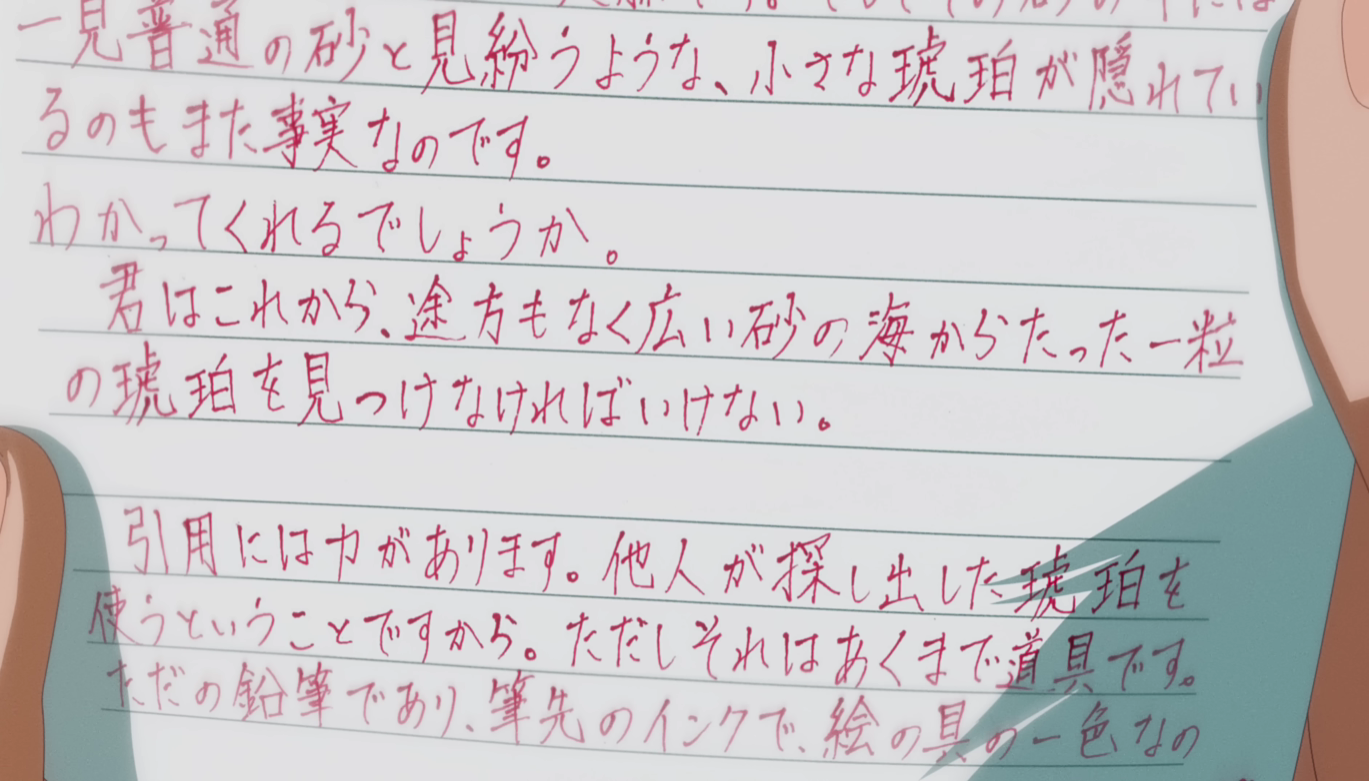 一見普通の砂と見紛うような、小さな琥珀が隠れてい
るのもまた事実なのです。
わかってくれるでしょうか。
君はこれから、途方もなく広い砂の海からたった一粒
の琥珀を見つけなければいけない。
引用には力があります。他人が探し出した琥珀を
使うということですから。ただしそれはあくまで道具です。
ただの鉛筆であり、筆先のインクで、絵の具の一色なの